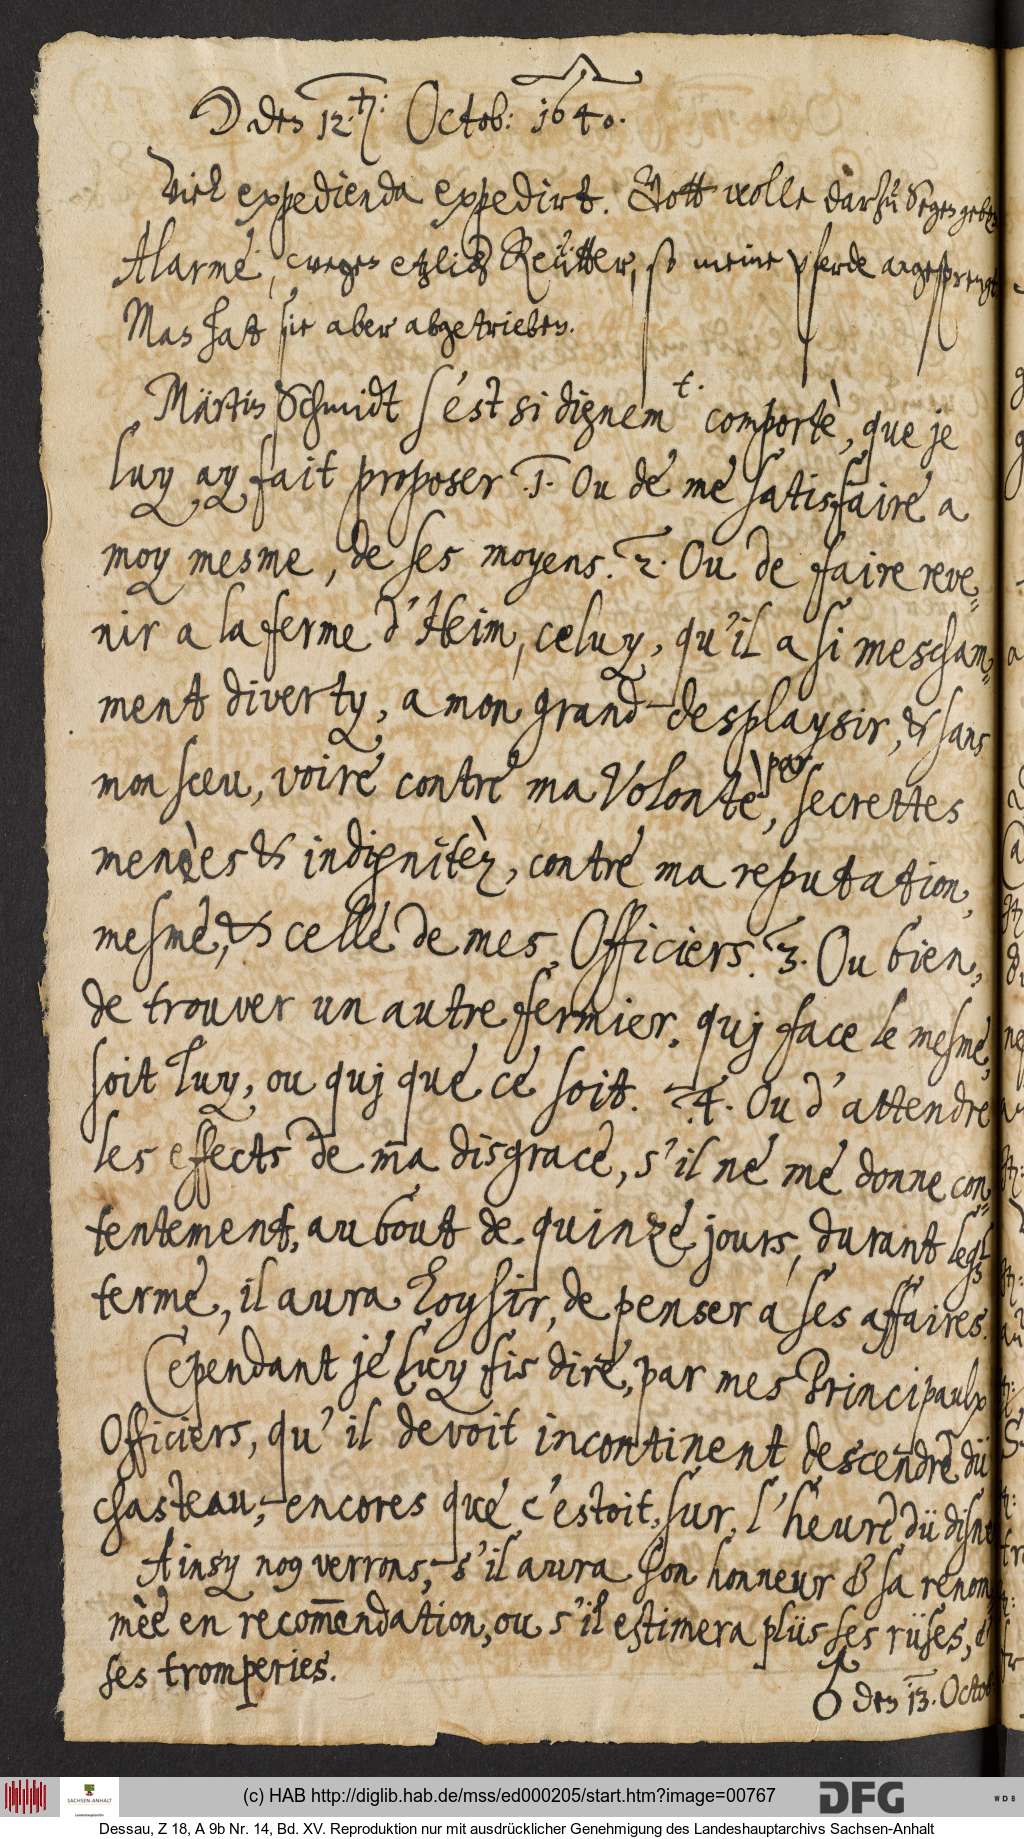 ☽ den 12.ten: Octob: 1640.
Viel expedienda expedirt. Gott wolle darzu Segen geben
Alarmé, wegen etzlich Reütter, so meine pferde angesprengt
Man hat sie aber abgetrieben.
Martin Schmidt s'ést si dignem.t comportè, que je
luy ay fait proposer .1. Ou dé mé satisfairé a
moy mesme, de ses moyens. 2. Ou de faire reve=
nir a la ferme d'Heim, celuy, qu'il a si mescham=
ment diverty, a mon grand desplaysir, & sans
mon sceu, voiré contré ma Volontè, par secrettes
menèes & indignitèz, contré ma reputation,
mesmé, & cellé de mes Officiers. 3. Ou bien,
de trouver un autre fermier, quj face le mesmé,
soit luy, ou quj qué cé soit. 4. Ou d'attendre
les effects de ma disgracé, s'il né mé donne con=
tentement, au bout de quinzé jours, durant leql
termé, il aura Loysir, de penser a ses affaires.
Cependant jé luy fis diré, par mes Principaulx
Officiers, qu'il devoit incontinent descendré dü
chasteau, encores qué c'estoit, sur l'heuré dü disne
Ainsy nos verrons, s'il aura son honneur & sa renom
mèe en recom̄endation, ou s'il estimera plüs ses rüses, &
ses tromperies.
♂ den 13. Octob
(c) HAB http://diglib.hab.de/mss/ed000205/start.htm?image=00767
SACHSEN-ANHALT
Landeshauptarchiv
DFG
WDB
Dessau, Z 18, A 9b Nr. 14, Bd. XV. Reproduktion nur mit ausdrücklicher Genehmigung des Landeshauptarchivs Sachsen-Anhalt